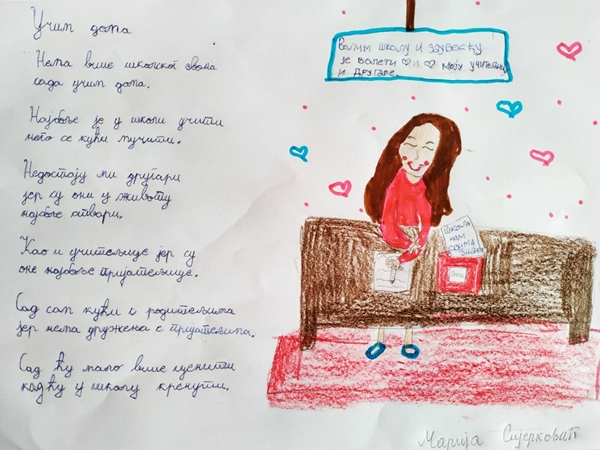 Учим дома
Нема више школског звона
сада учим дома.
Најбоље је у школи учити
него се кући мучити.
Недостају ми другари
јер су они у животу
најбоље ствари.
Као и учитељице јер су
оне најбоље пријатељице.
Сад сам кући с родитељима
јер нема дружења с пријатељима.
Сад ћу мало више ценити
кад ћу у школу кренути.
Волим школу и заувек ћу
је волети и моју учитељицу
и другаре.
школа
нам
свима
Марија Сјерковић